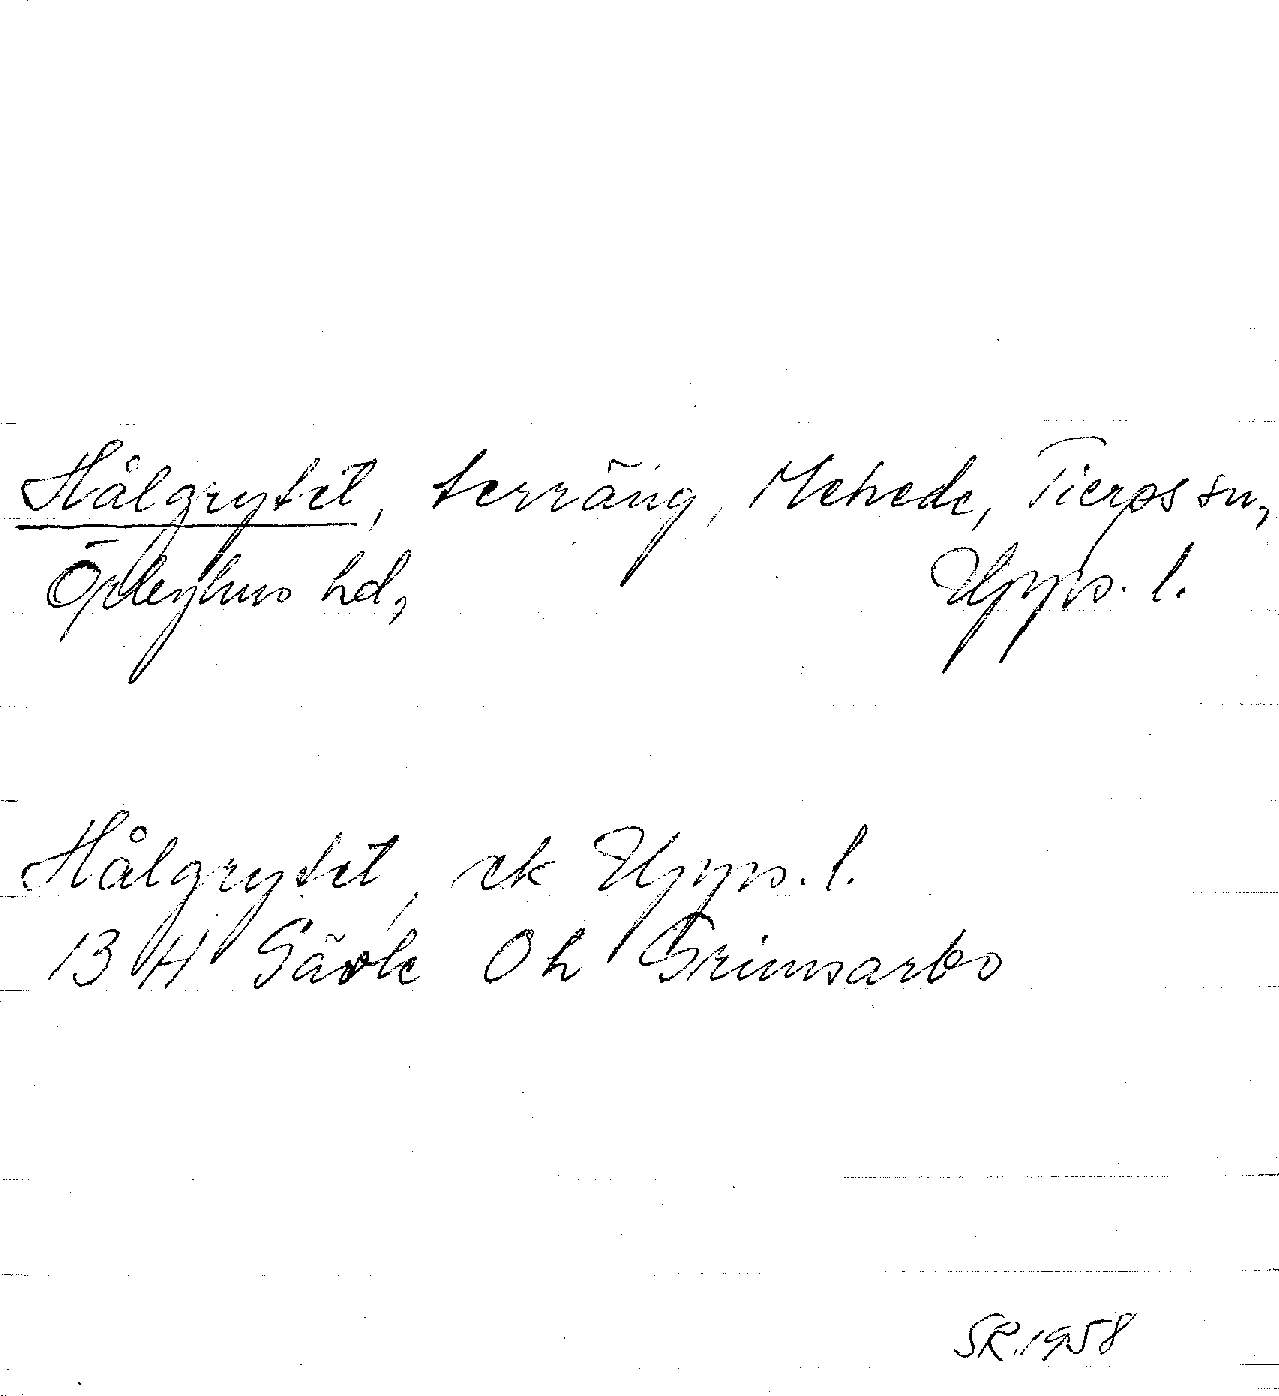 Hålgrytet, terräng, Mehede, Tierps sn,
Örbyhus hd, Upps. l.
Hålgrytet, ek Upps. l.
13 H Gävle 0 h Grimsarbo
SR.1958